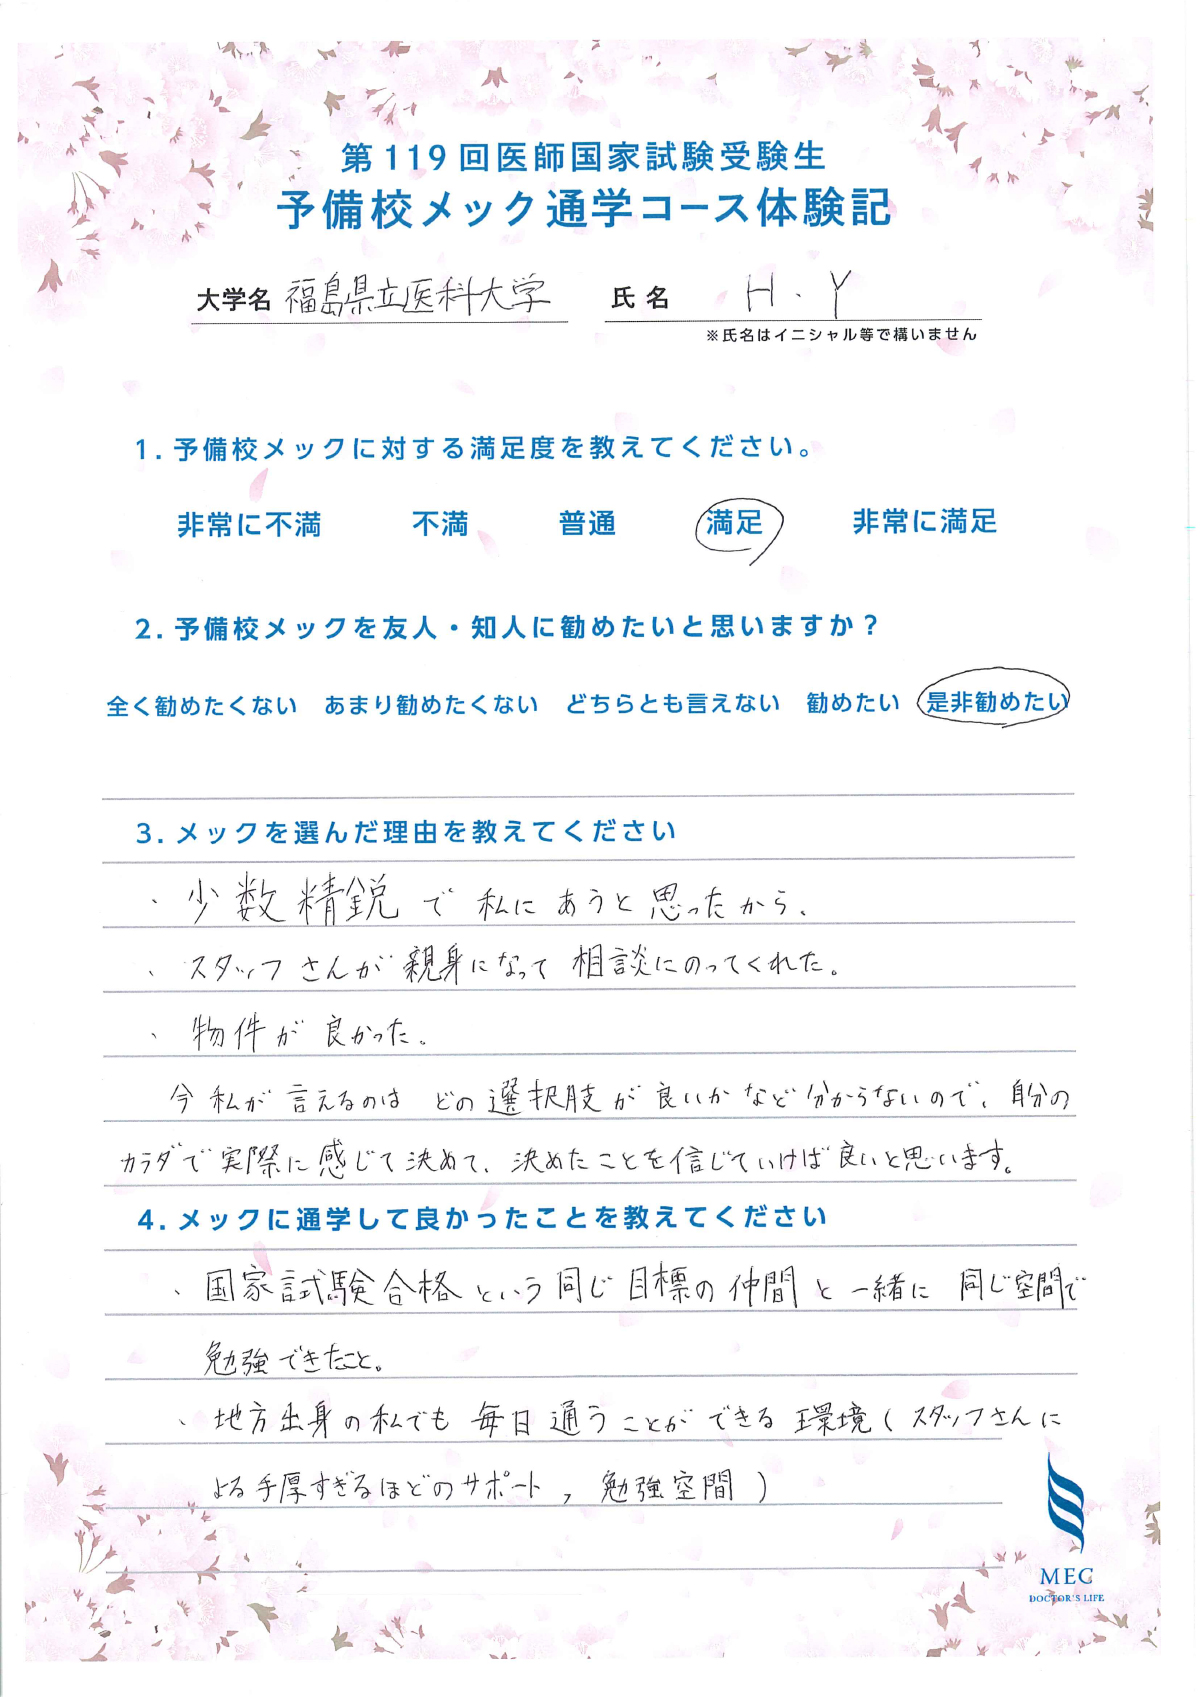 第119回医師国家試験受験生
予備校メック通学コース体験記
大学名 福島県立医科大学 氏名 H.Y
※氏名はイニシャル等で構いません
1.予備校メックに対する満足度を教えてください。
非常に不満 不満 普通 満足 非常に満足
2.予備校メックを友人・知人に勧めたいと思いますか？
全く勧めたくない あまり勧めたくない どちらとも言えない 勧めたい 是非勧めたい
3.メックを選んだ理由を教えてください
、少数精鋭で私にあうと思ったから、
、スタッフさんが親身になって相談にのってくれた。
、物件が良かった。
今私が言えるのは どの選択肢が良いかなど分からないので、自分の
カラダで実際に感じて決めて、決めたことを信じていけば良いと思います。
4.メックに通学して良かったことを教えてください
、国家試験合格という同じ目標の仲間と一緒に 同じ空間で
勉強できたこと。
、地方出身の私でも毎日通うことができる環境(スタッフさんに
よる手厚すぎるほどのサポート,勉強空間)
MEC
DOCTOR'S LIFE